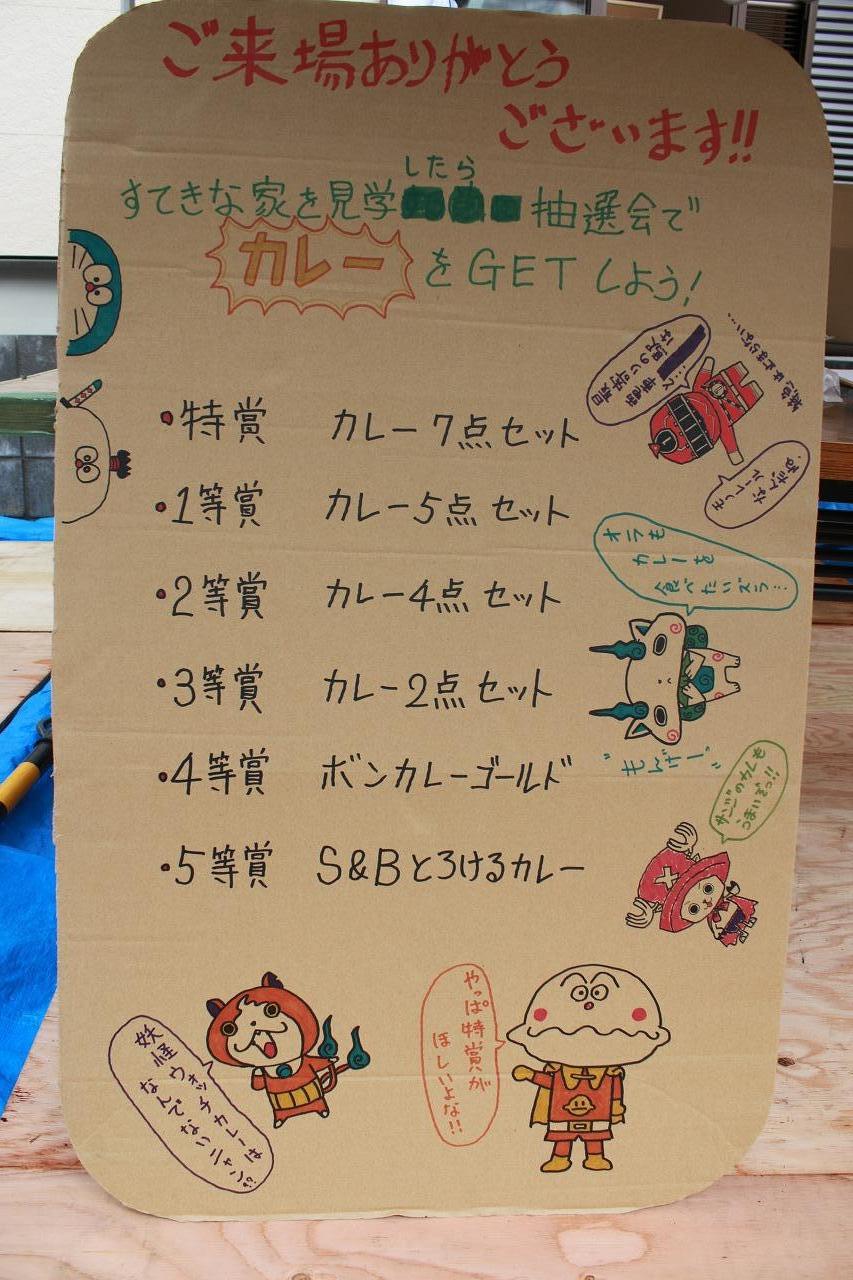 ご来場ありがとう
ございます!!
したら
すてきな家を見学 抽選会で
カレーをGETしよう!
・特賞 カレー7点セット
・1等賞 カレー5点セット
・2等賞 カレー4点セット
・3等賞 カレー2点セット
・4等賞 ボンカレーゴールド
・5等賞 S&Bとろけるカレー
オラも
カレーを
食べたいズラ…
"もんげー"
サンジのカレーも
うまいぞっ!!
やっぱ特賞が
ほしいよな!!
妖怪ウォッチカレーは
なんでないニャン!?